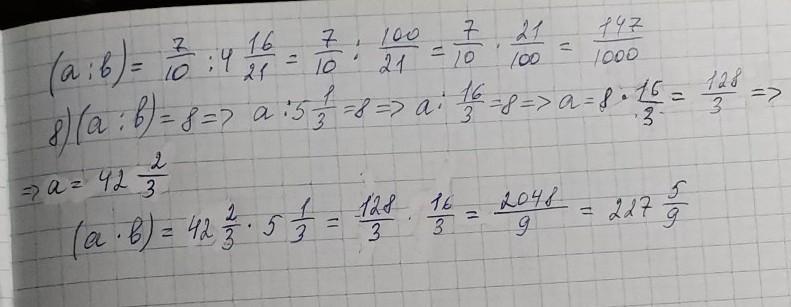 (a : b) = 7/10 : 4 16/21 = 7/10 : 100/21 = 7/10 · 21/100 = 147/1000
8) (a : b) = 8 => a : 5 1/3 = 8 => a : 16/3 = 8 => a = 8 · 16/3 = 128/3 =>
=> a = 42 2/3
(a · b) = 42 2/3 · 5 1/3 = 128/3 · 16/3 = 2048/9 = 227 5/9